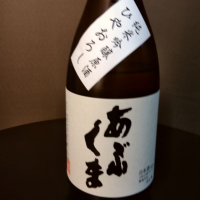 純米吟醸原酒
ひやおろし
あぶくま